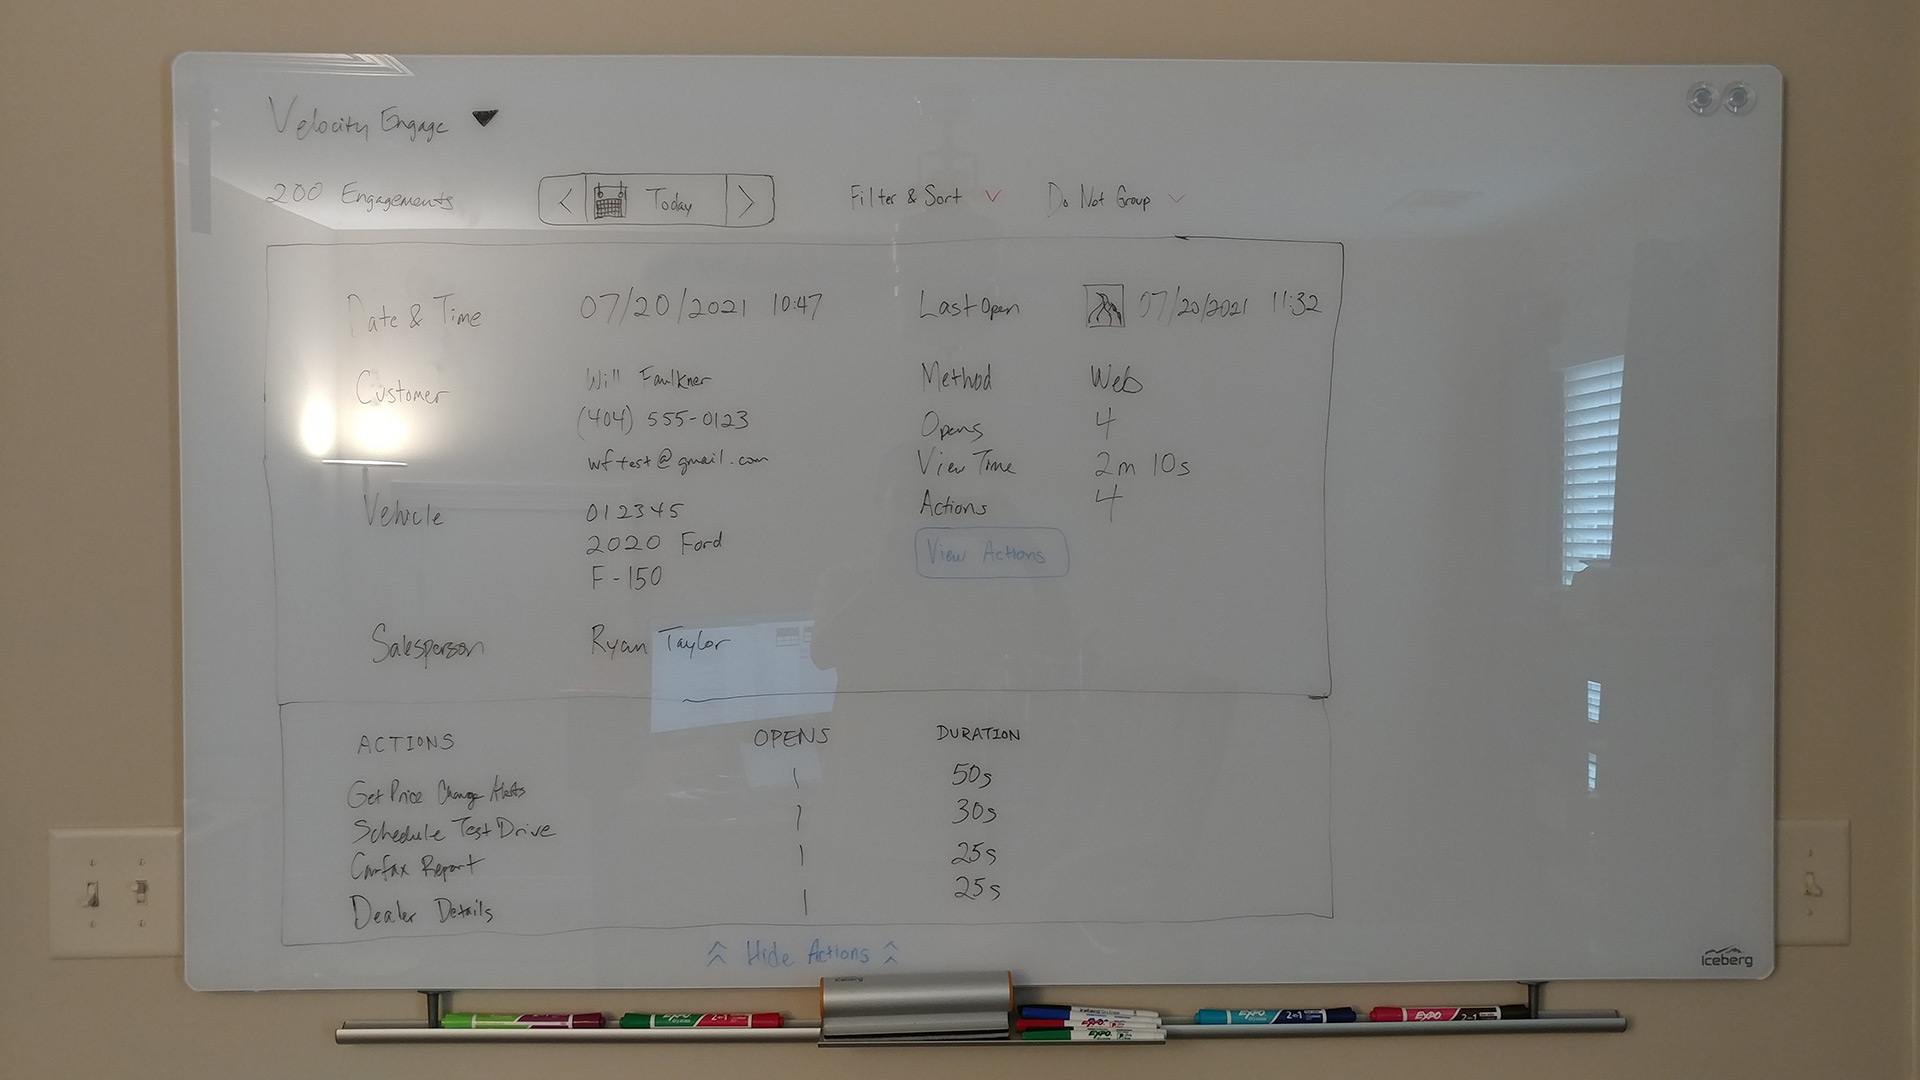 Velocity Engage
200 Engagements
< Today >
Filter & Sort
Do Not Group
Date & Time 07/20/2021 10:47
Last Open 07/20/2021 11:32
Customer Will Faulkner
(404) 555-0123
wftest@gmail.com
Method Web
Opens 4
View Time 2m 10s
Actions 4
View Actions
Vehicle 012345
2020 Ford
F-150
Salesperson Ryan Taylor
ACTIONS OPENS DURATION
Get Price Change Alerts 1 50s
Schedule Test Drive 1 30s
Carfax Report 1 25s
Dealer Details 1 25s
Hide Actions
iceberg
iceberg
EXPO 2in1
EXPO
EXPO
EXPO 2in1
EXPO 2in1